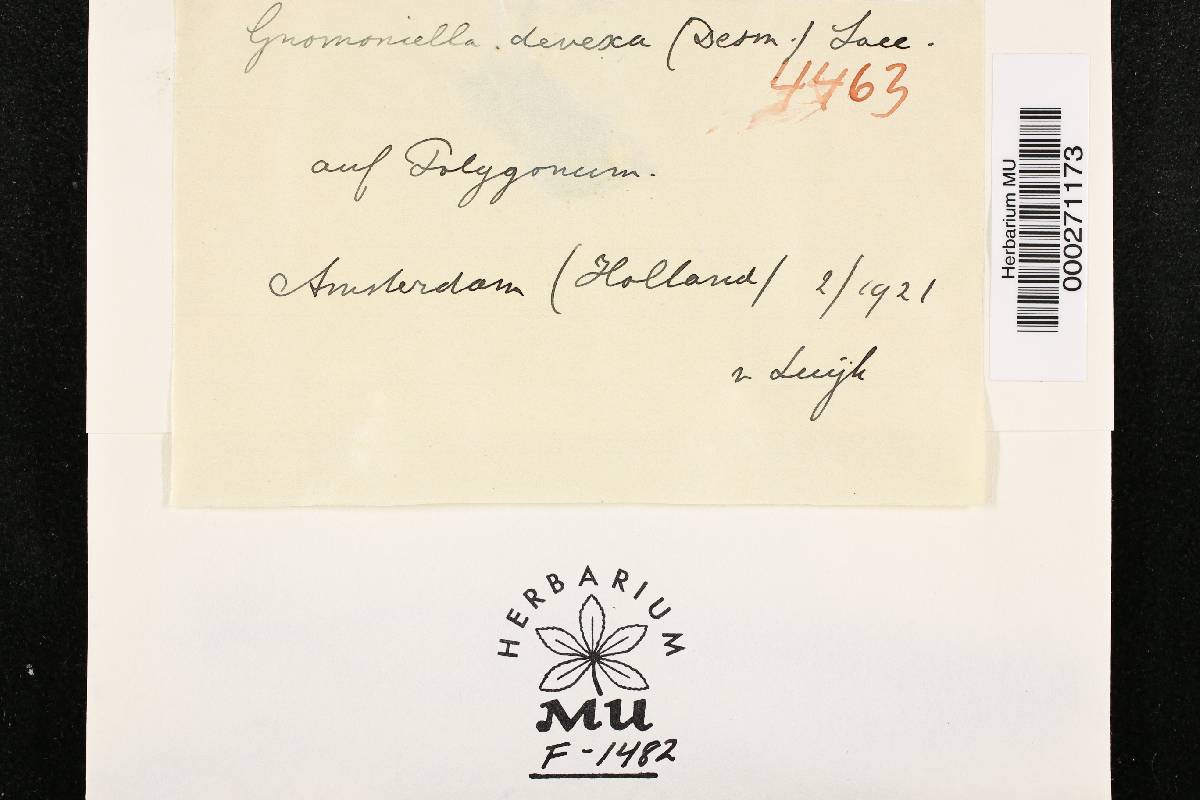 Gnomoniella devexa (Desm.) Sacc.
4463
auf Polygonum.
Amsterdam (Holland) 2/1921
v Luijk
Herbarium MU
000271173
HERBARIUM
MU
F-1482